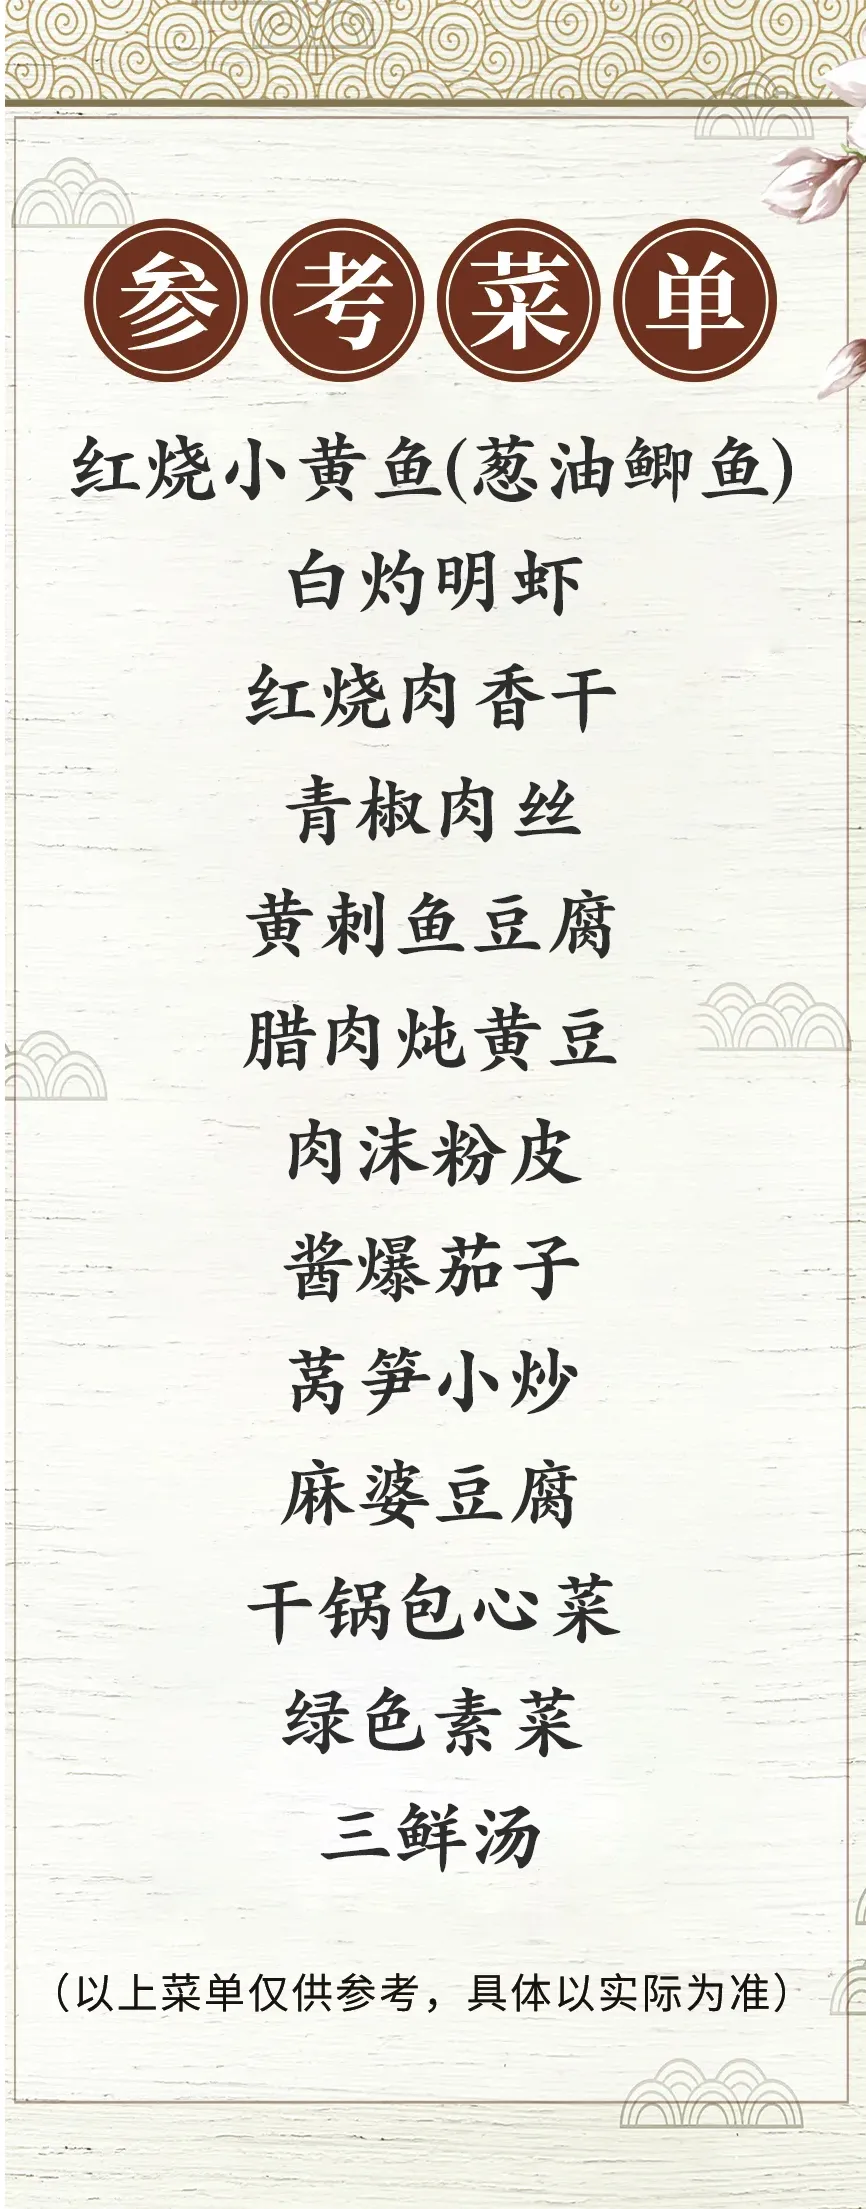 参考菜单
红烧小黄鱼(葱油鲫鱼)
白灼明虾
红烧肉香干
青椒肉丝
黄刺鱼豆腐
腊肉炖黄豆
肉沫粉皮
酱爆茄子
莴笋小炒
麻婆豆腐
干锅包心菜
绿色素菜
三鲜汤
（以上菜单仅供参考，具体以实际为准）